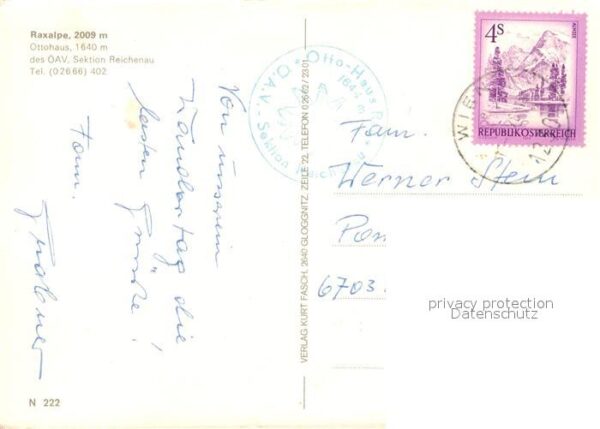 Raxalpe, 2009 m
Ottohaus, 1640 m
des ÖAV, Sektion Reichenau
Tel. (02666) 402
Von unserem
Wandertag die
besten Grüsse!
Fam.
N 222
VERLAG KURT FASCH, 2640 GLOGGNITZ, ZEILE 22, TELEFON 02662 / 2301
Ö.A.V. Sektion Reichenau
Otto-Haus
1644 m
4S
REPUBLIK ÖSTERREICH
WIEN
Fam.
Werner Stein
6703
privacy protection
Datenschutz